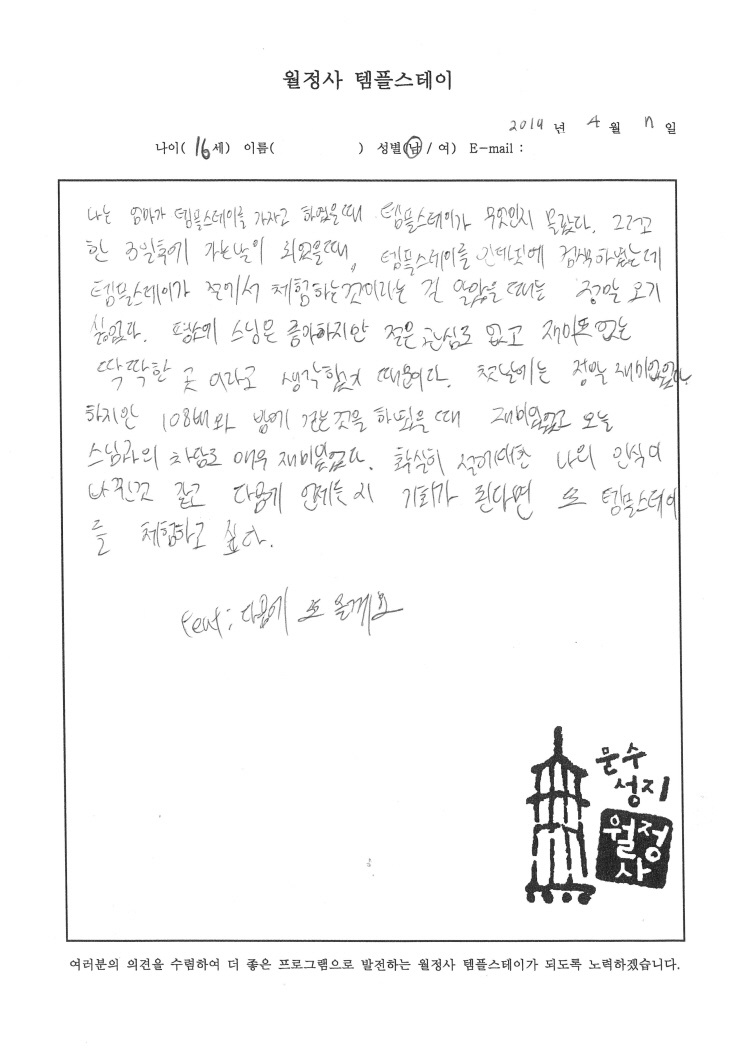 월정사 템플스테이
2014 년 4 월 일
나이( 16 세) 이름( ) 성별(남 / 여) E-mail :
나는 엄마가 템플스테이를 가자고 하였을때 템플스테이가 무엇인지 몰랐다. 그리고
한 3일후에 가는날이 되었을때, 템플스테이를 인터넷에 검색하였는데
템플스테이가 절에서 체험하는것이라는 걸 알았을 때는 정말 오기
싫었다. 평소에 스님은 좋아하지만 절은 관심도 없고 재미도 없는
딱딱한 곳 이라고 생각했기 때문이다. 첫날에는 정말 재미없었다.
하지만 108배와 밤에 걷는것을 하였을 때 재미있었고 오늘
스님과의 차담도 매우 재미있었다. 확실히 절에대한 나의 인식이
바뀐것 같고 다음에 언제든지 기회가 된다면 또 템플스테이
를 체험하고 싶다.
feat: 다음에 또 올게요
문수
성지
월정
사
여러분의 의견을 수렴하여 더 좋은 프로그램으로 발전하는 월정사 템플스테이가 되도록 노력하겠습니다.